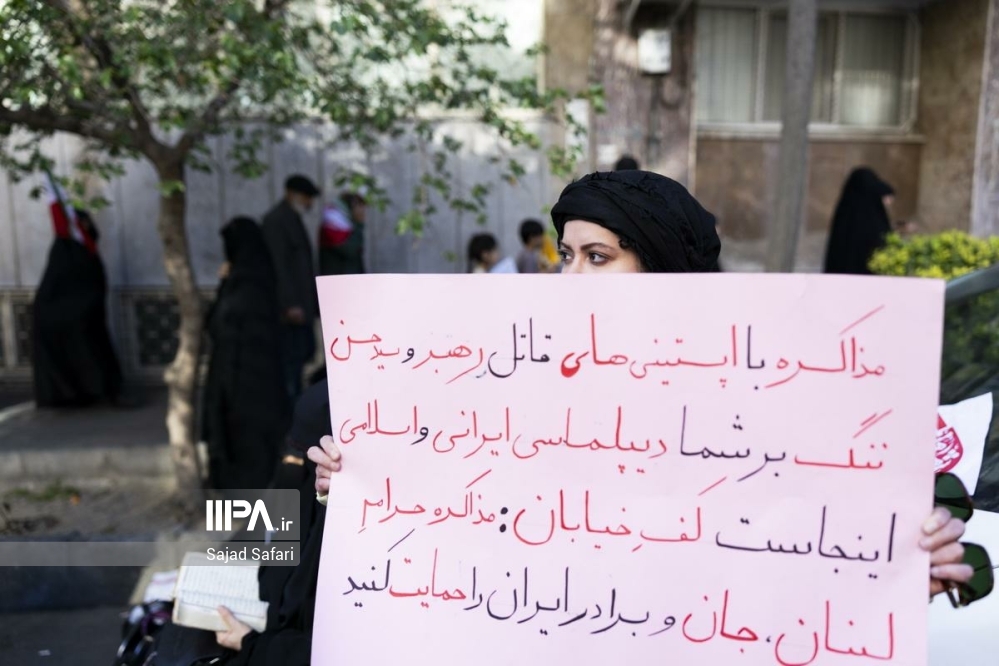 مذاکره با اپستینی‌های قاتل رهبر و سید حسن
ننگ بر شما دیپلماسی ایرانی و اسلامی
اینجاست کفِ خیابان: مذاکره حرام
لبنان، جان و برادر ایران را حمایت کنید
IIPA.ir
Sajad Safari